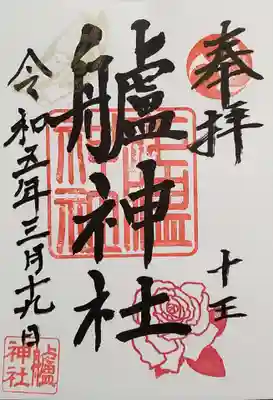 奉拝
十王
艫神社
艫神社
令和五年三月十九日
艫神社